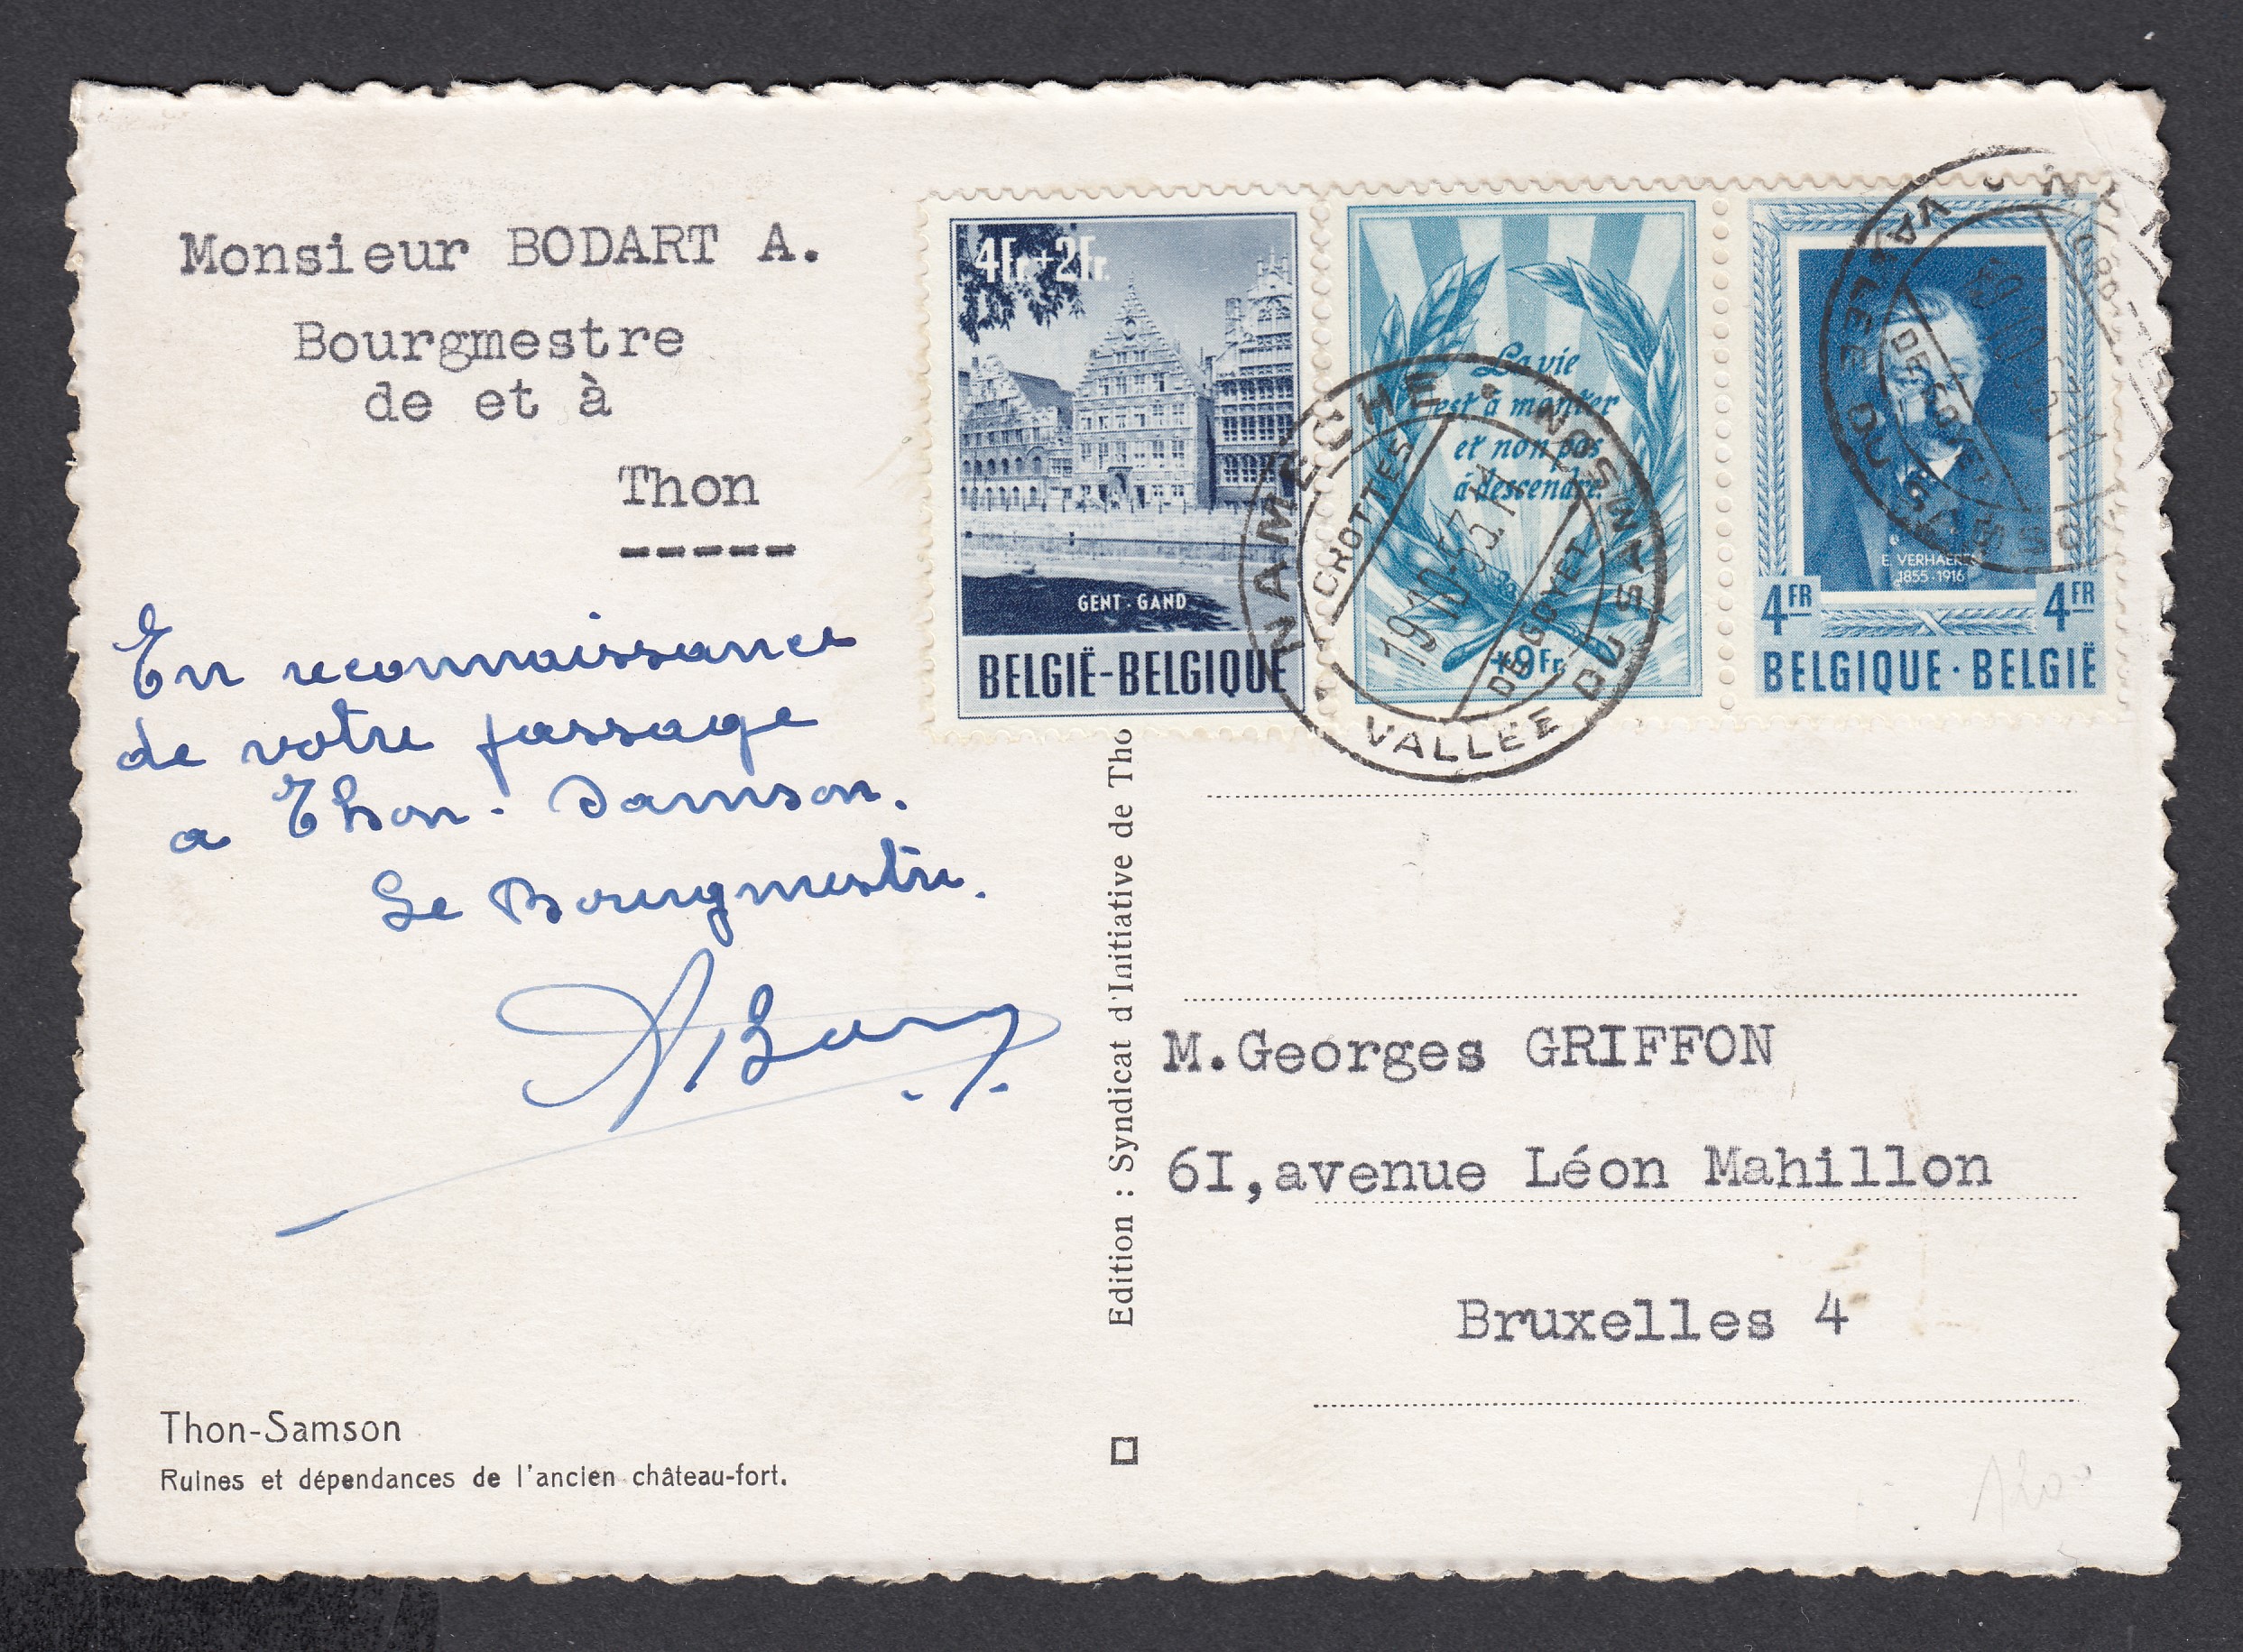 Monsieur BODART A.
Bourgmestre
de et à
Thon
-----
En reconnaissance
de votre passage
a Thon-Samson.
Le Bourgmestre.
Thon-Samson
Ruines et dépendances de l'ancien château-fort.
Edition : Syndicat d'Initiative de Tho
4Fr.+2Fr.
GENT - GAND
BELGIË-BELGIQUE
La vie
est à monter
et non pas
à descendre.
+9Fr.
E. VERHAEREN
1855-1916
4FR 4FR
BELGIQUE · BELGIË
NAMECHE
VALLÉE DU SAMSON
GROTTES
DE GOYET
19-10-53
VALLÉE DU SAMSON
DE GOYET
M.Georges GRIFFON
6I,avenue Léon Mahillon
Bruxelles 4